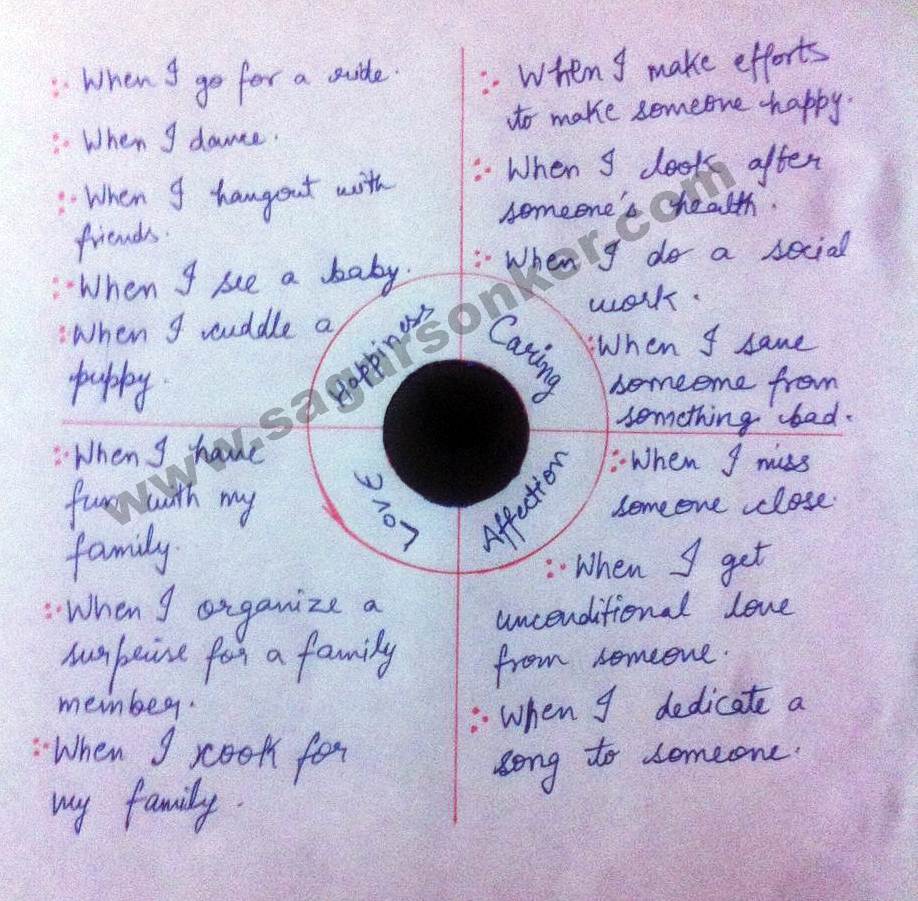 When I go for a ride.
When I dance.
When I hangout with
friends.
When I see a baby.
When I cuddle a
puppy.
When I make efforts
to make someone happy.
When I look after
someone's health.
When I do a social
work.
When I save
someome from
something bad.
Happiness
Caring
Love
Affection
www.sagarsonker.com
When I have
fun with my
family.
When I organize a
surprise for a family
member.
When I cook for
my family.
When I miss
someone close
When I get
unconditional love
from someone.
When I dedicate a
song to someone.